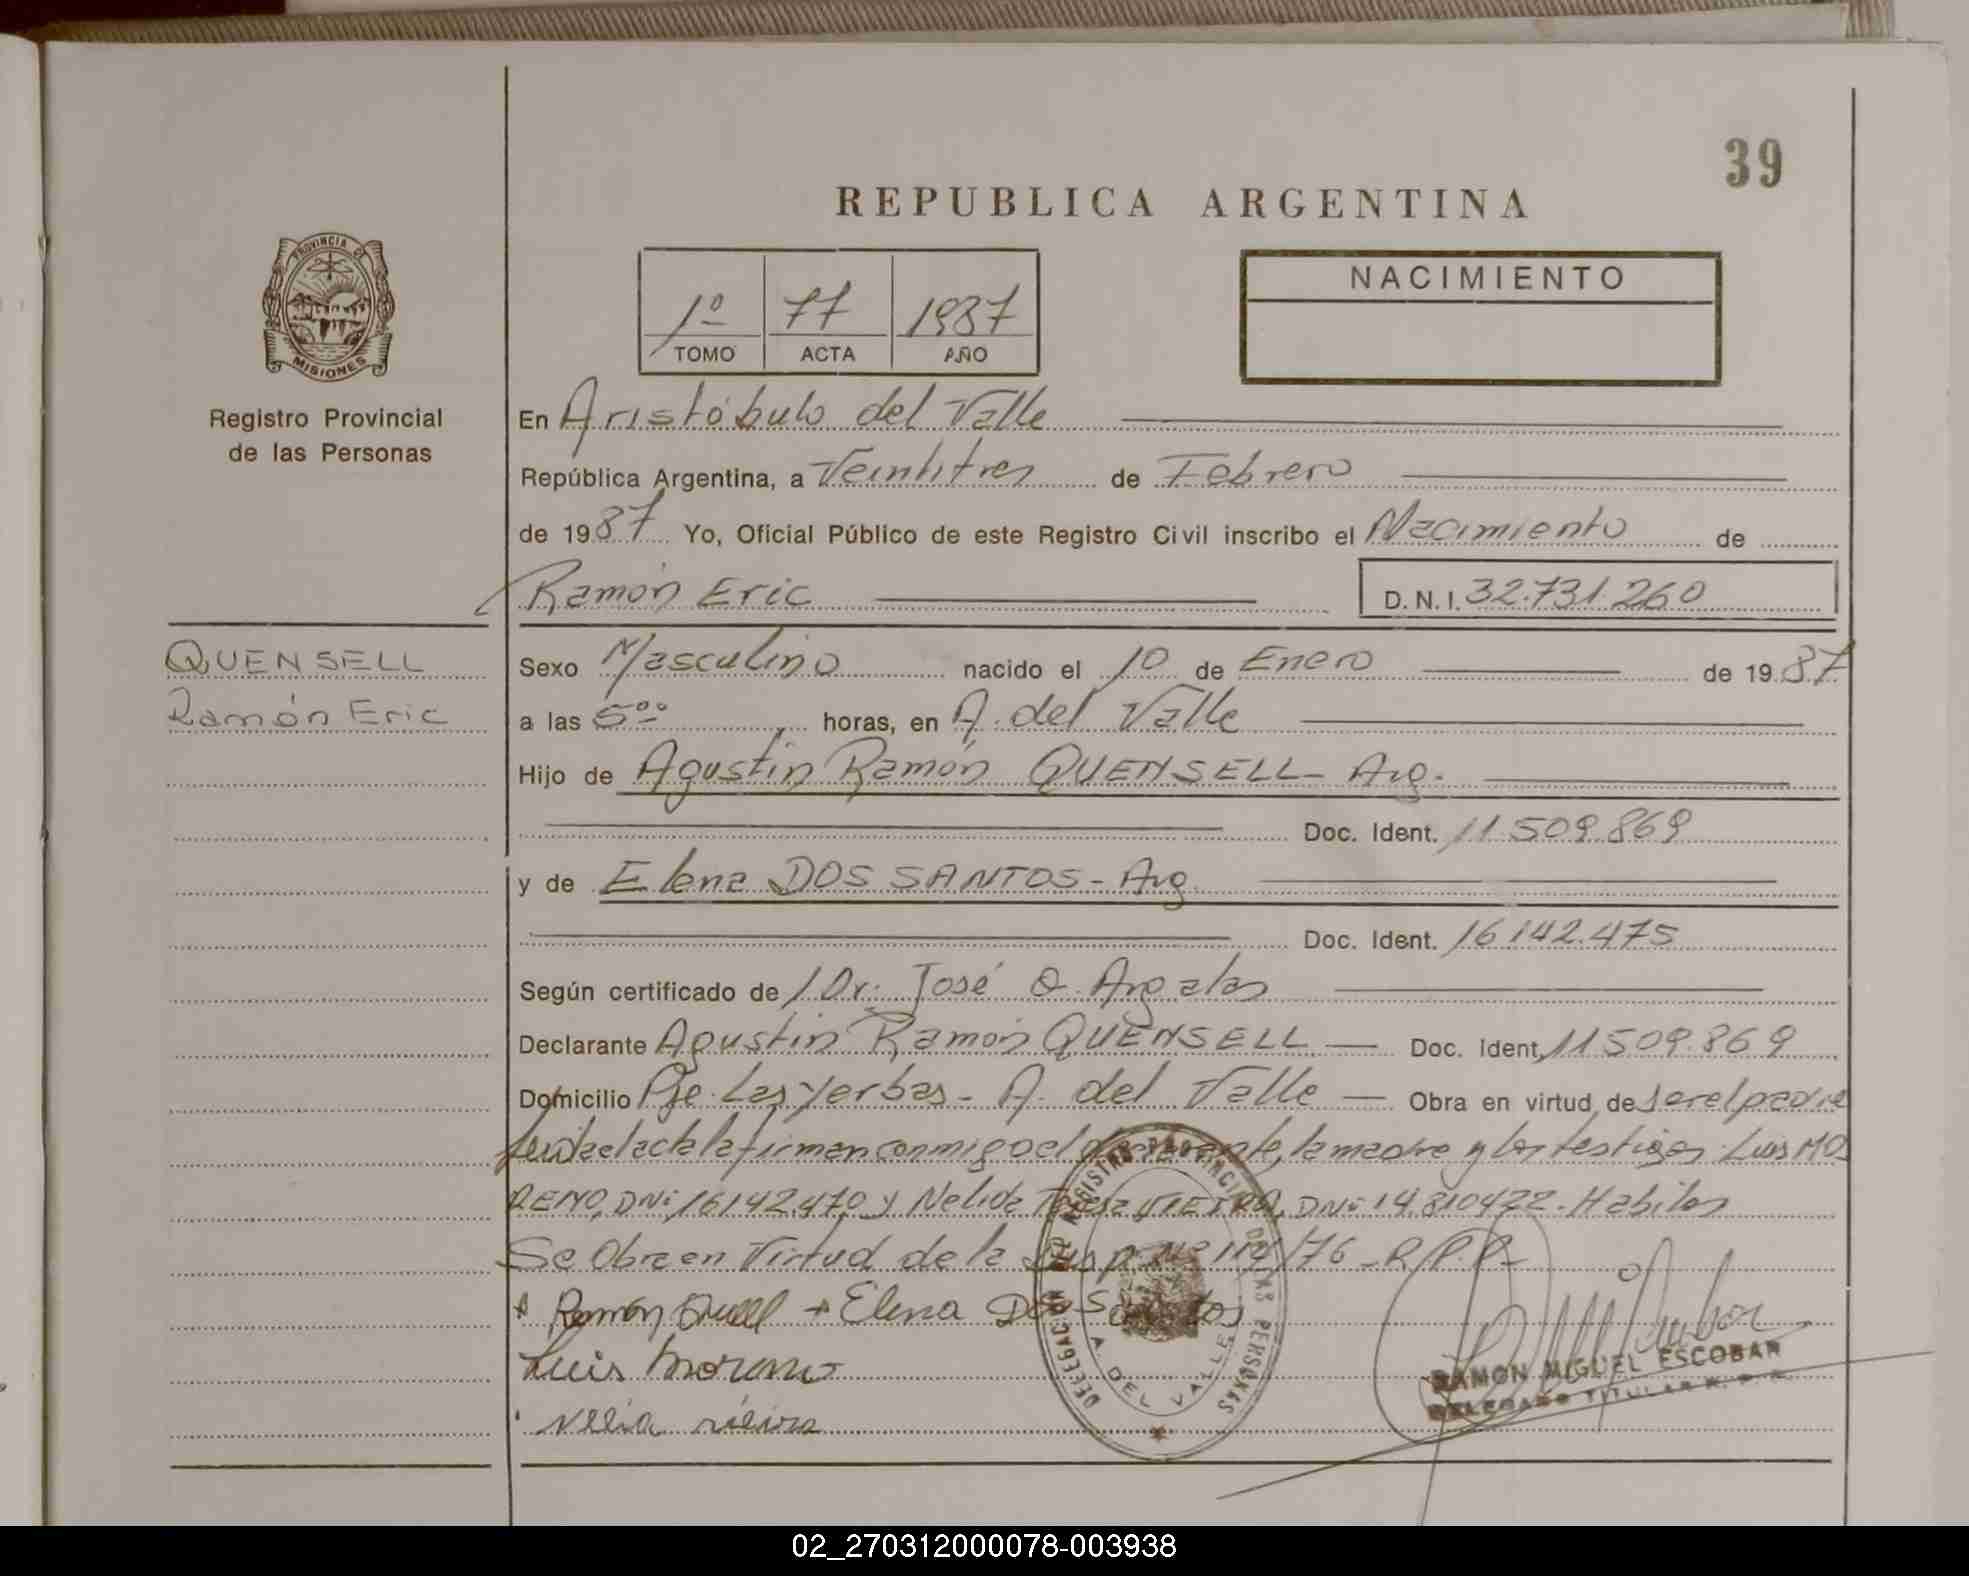 39
REPUBLICA ARGENTINA
PROVINCIA DE
MISIONES
Registro Provincial
de las Personas
1º 77 1987
TOMO ACTA AÑO
NACIMIENTO
En Aristóbulo del Valle
República Argentina, a Veintitres de Febrero
de 1987 Yo, Oficial Público de este Registro Civil inscribo el Nacimiento de
Ramón Eric D.N.I. 32.731.260
QUENSELL
Ramón Eric
Sexo Masculino nacido el 10 de Enero de 1987
a las 5ºº horas, en A. del Valle
Hijo de Agustin Ramón QUENSELL - Arg.
Doc. Ident. 11.509.869
y de Elena DOS SANTOS - Arg.
Doc. Ident. 16.142.475
Según certificado de Dr. José O.
Declarante Agustin Ramón QUENSELL Doc. Ident. 11.509.869
Domicilio Pje. Las Yerbas - A. del Valle Obra en virtud de ser el padre
leida el acta la firman conmigo el declarante, la madre y los testigos: Luis MO
RENO, DNI: 16.142.470 y Nelida VIEIRA, DNI: 14.810.422. Habiles
Se Obra en Virtud de la /76 - R.P.P.
Ramón Elena Dos Santos
Luis Moreno
vieira
DELEGACION DEL REGISTRO PROVINCIAL DE LAS PERSONAS
A. DEL VALLE
RAMON MIGUEL ESCOBAR
DELEGADO TITULAR R. P. P.
02_270312000078-003938